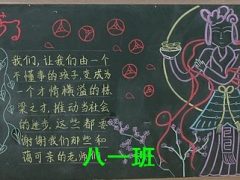 我们，让我们由一个
不懂事的孩子，变成为
一个才情横溢的栋
梁之才，推动当社会
的进步，这些都要
谢谢我们那些和
蔼可亲的老师们
八一班